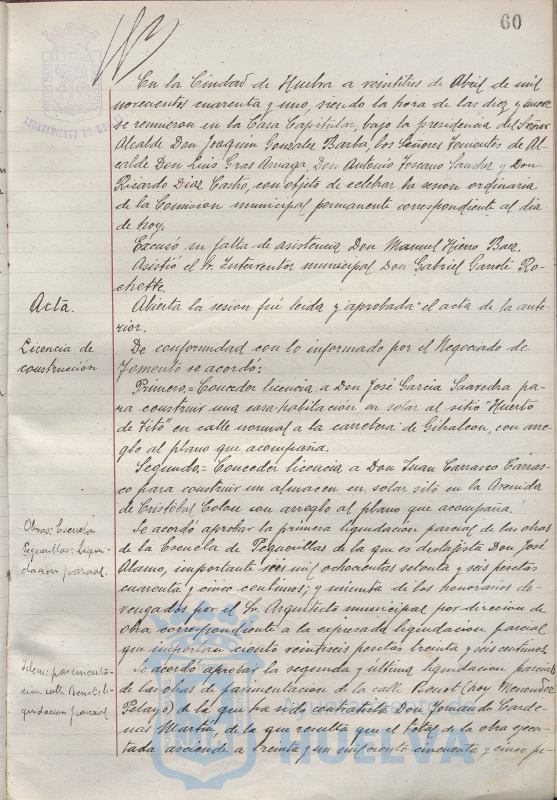 60
AYUNTAMIENTO DE HUELVA
En la Ciudad de Huelva a veintitres de Abril de mil
novecientos cuarenta y uno, siendo la hora de las diez y nueve
se reunieron en la Casa Capitular, bajo la presidencia del Señor
Alcalde Don Joaquin Gonzalez Barba, los Señores Tenientes de Al-
calde Don Luis Gras Arnaga, Don Antonio Toscano Sanchez y Don
Ricardo Diaz Castro, con objeto de celebrar la sesion ordinaria
de la Comision municipal permanente correspondiente al dia
de hoy.
Excusó su falta de asistencia Don Manuel Hiero Baez.
Asistió el Sr. Interventor municipal Don Gabriel Garrote Ro-
chette.
Acta.
Abierta la sesion fué leida y aprobada el acta de la ante-
rior.
Licencia de
construcción
De conformidad con lo informado por el Negociado de
Fomento se acordó:
Primero.= Conceder licencia a Don José Garcia Saavedra pa-
ra construir una casa-habitación en solar al sitio "Huerto
de Tito" en calle normal a la carretera de Gibraleon, con arre-
glo al plano que acompaña.
Segundo.= Conceder licencia a Don Juan Carrasco Carras-
co para construir un almacen en solar sito en la Avenida
de Cristóbal Colon con arreglo al plano que acompaña.
Obras: Escuela
Pequeñillas: liqui-
dacion parcial.
Se acordó aprobar la primera liquidación parcial de las obras
de la Escuela de Pequeñillas de la que es destajista Don José
Alamo, importante seis mil ochocientas setenta y seis pesetas
cuarenta y cinco centimos; y minuta de los honorarios de-
vengados por el Sr. Arquitecto municipal por direccion de
obra correspondiente a la expresada liquidacion parcial
que importan ciento veintiseis pesetas treinta y seis centimos.
Idem: pavimenta-
ción calle Benot; li-
quidacion parcial
Se acordó aprobar la segunda y última liquidacion parcial
de las obras de pavimentacion de la calle Benot (hoy Menendez
Pelayo) de la que ha sido contratista Don Fernando Carde-
nas Martin, de la que resulta que el total de la obra ejecu-
tada asciende a treinta y un mil ciento cincuenta y cinco pe-
Ayuntamiento de
HUELVA